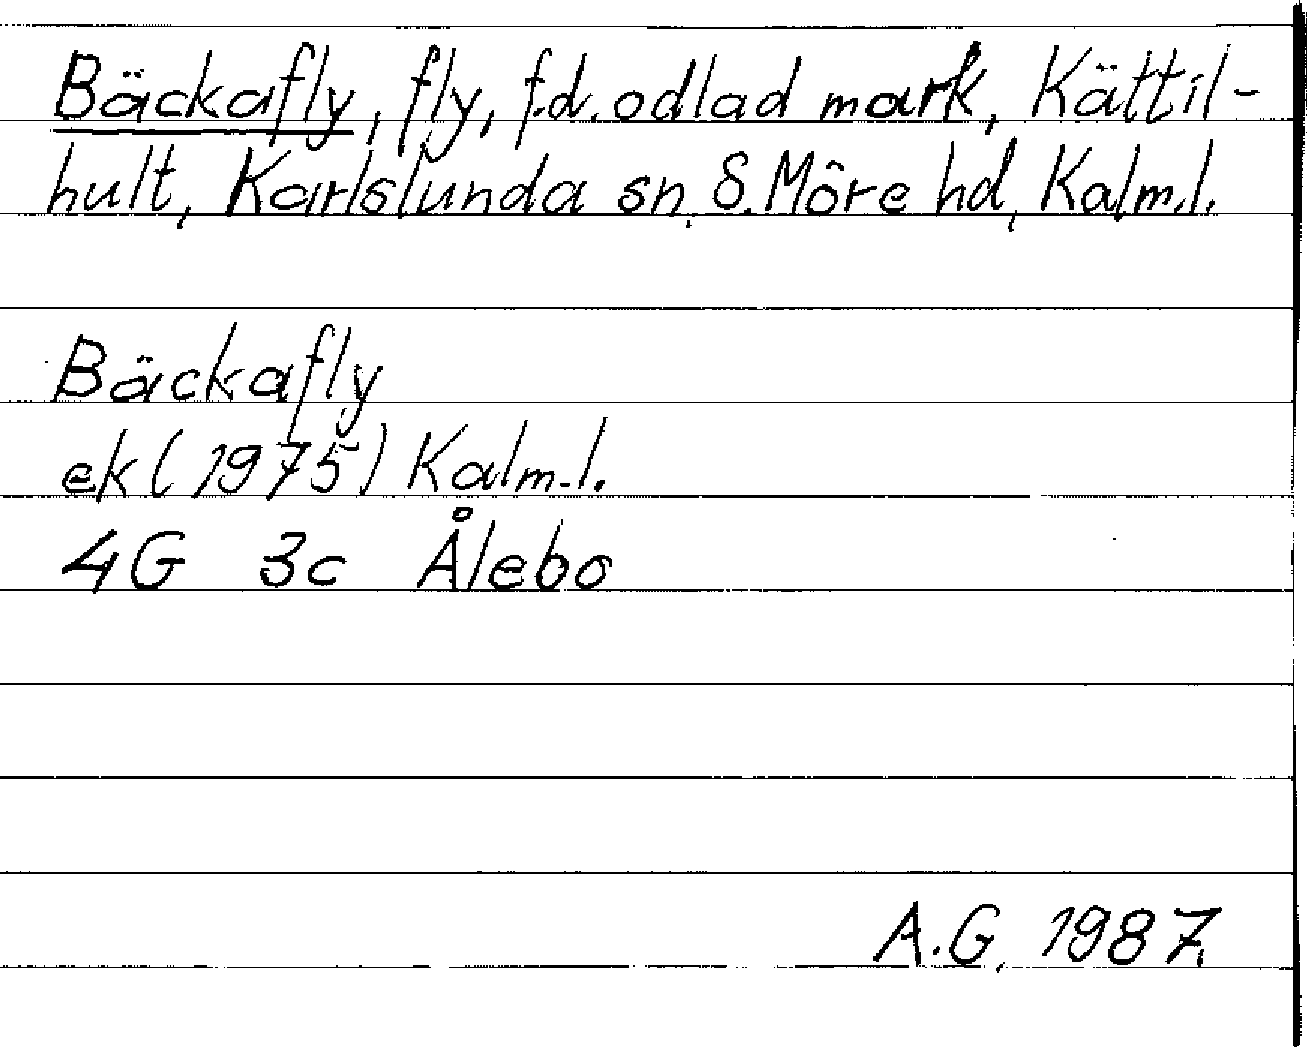 Bäckafly, fly, f.d. odlad mark, Kättil-
hult, Karlslunda sn, S. Möre hd, Kalm.l.
Bäckafly
ek (1975) Kalm.l.
4G 3c Ålebo
A.G. 1987